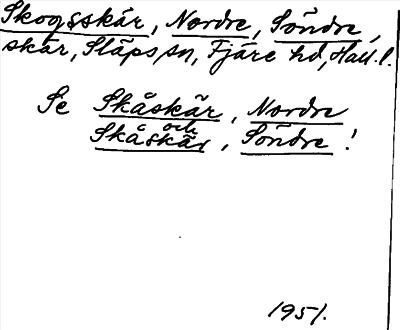 Skogsskär, Nordre, Söndre,
skär, Släps sn, Fjäre hd, Hall. l.
Se Skåskär, Nordre
och
Skåskär, Söndre!
1951.